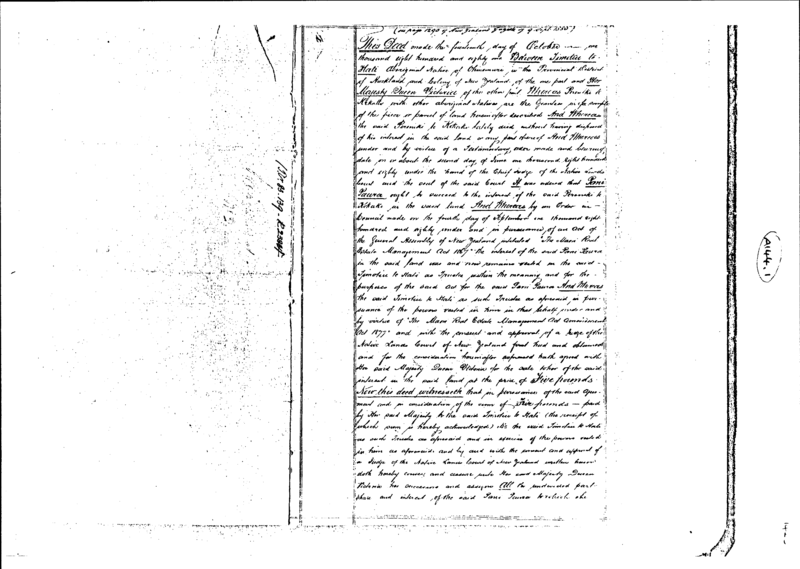 (on page 1290 of New Zealand Gazette of 9 Sept 1880)
This Deed made the fourteenth day of October one
thousand eight hundred and eighty one Between Timotiu te
Hati Aboriginal Native, of Ohinemuri, in the Provincial District
of Auckland and Colony of New Zealand, of the one part and Her
Majesty Queen Victoria of the other part Whereas te
Kihuki with other aboriginal Natives, are the Grantees in fee simple
of the piece or parcel of land hereinafter described And Whereas
the said te Kihuki lately died without having disposed
of his interest in the said land or any part thereof And Whereas
under and by virtue of a order made and bearing
date on or about the second day of June one thousand eight hundred
and eighty under the hand of the Chief Judge of the Native Lands
Court and the seal of the said Court It was ordered that Pani
ought to succeed to the interest of the said te
Kihuki in the said land And Whereas by an Order in
Council made on the fourth day of September one thousand eight
hundred and eighty under and in pursuance of an Act of
the General Assembly of New Zealand intituled "The Maori Real
Estate Management Act 1867" the interest of the said Pani
in the said land was and now remains vested in the said
Timotiu te Hati as Trustee within the meaning and for the
purposes of the said Act for the said Pani And Whereas
the said Timotiu te Hati as such Trustee as aforesaid in pur-
suance of the powers vested in him in that behalf under and
by virtue of "The Maori Real Estate Management Act Amendment
Act 1877" and with the consent and approval of a Judge of the
Native Lands Court of New Zealand first had and obtained
and for the consideration hereinafter expressed hath agreed with
Her said Majesty Queen Victoria for the sale to her of the said
interest in the said land at the price of Five pounds
Now this deed witnesseth that in pursuance of the said Agree-
ment and in consideration of the sum of Five pounds paid
by Her said Majesty to the said Timotiu te Hati (the receipt of
which sum is hereby acknowledged) He the said Timotiu te Hati
as such Trustee as aforesaid and in exercise of the powers vested
in him as aforesaid and by and with the consent and approval of
a Judge of the Native Lands Court of New Zealand
doth hereby convey and assure unto Her said Majesty Queen
Victoria her successors and assigns All the undivided part
share and interest of the said Pani to which she
A144.1